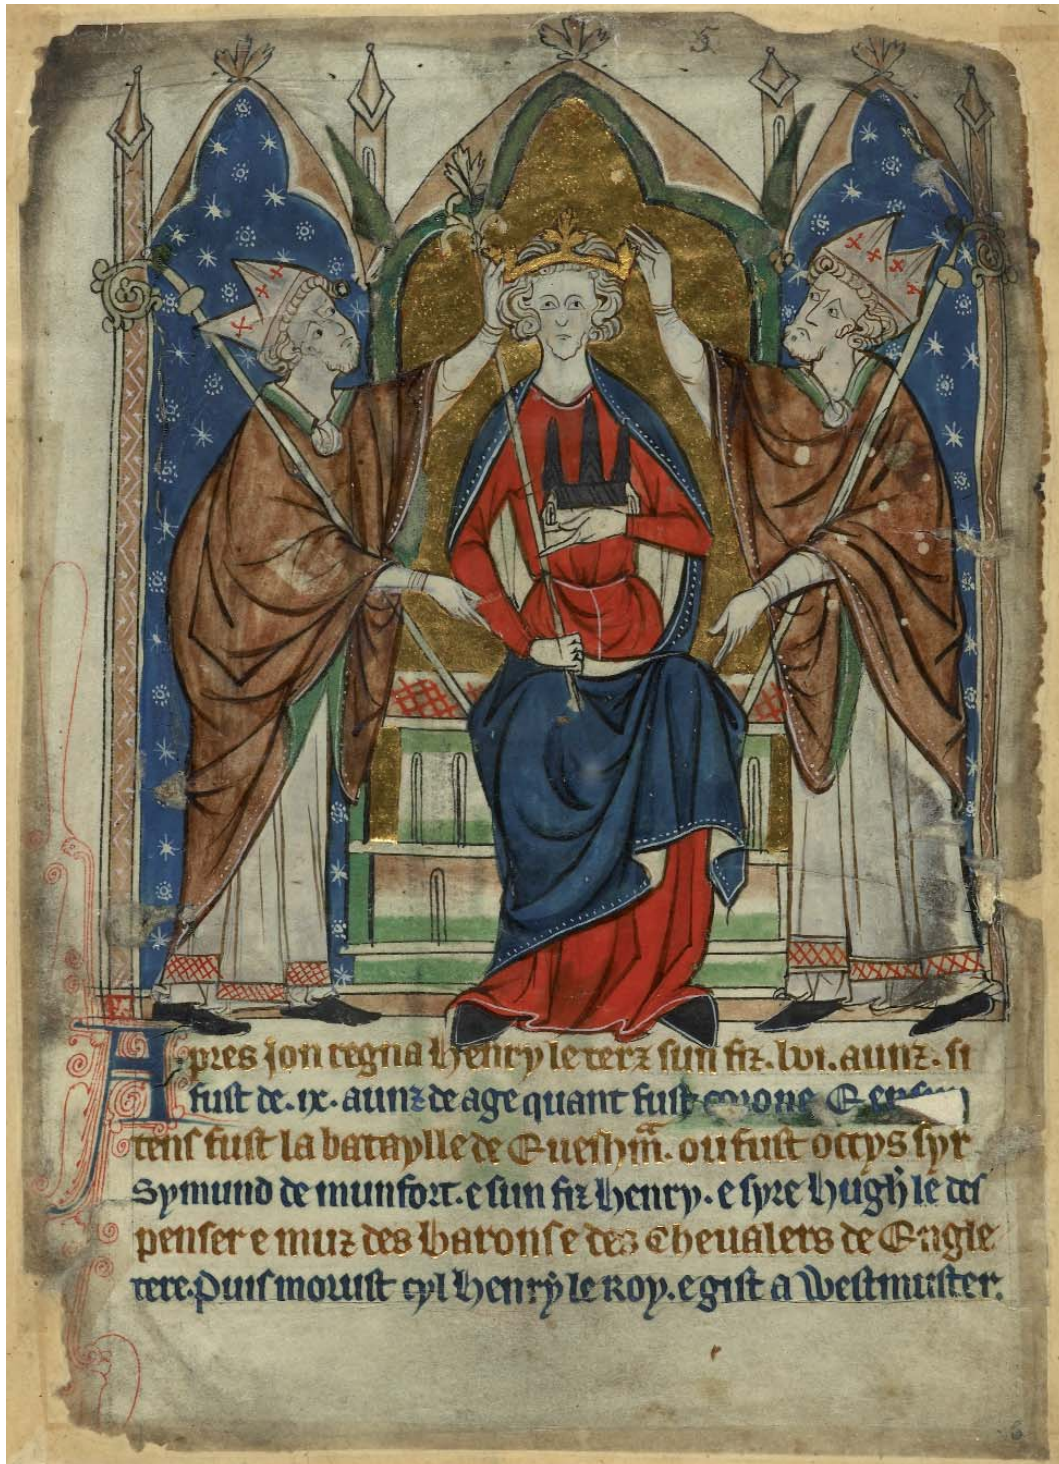 5
Apres Jon regna Henry le terz sun fiz .lvi. aunz. si
fust de .ix. aunz de age quant fust corone E en sun
tens fust la bataylle de Euesham. ou fust occys syr
Symund de munfort. e sun fiz Henry. e syre hugh le des
penser e muz des barons e des Cheualers de Engle
tere. Puis morust cyl Henry le Roy. e gist a Westmuster.
6